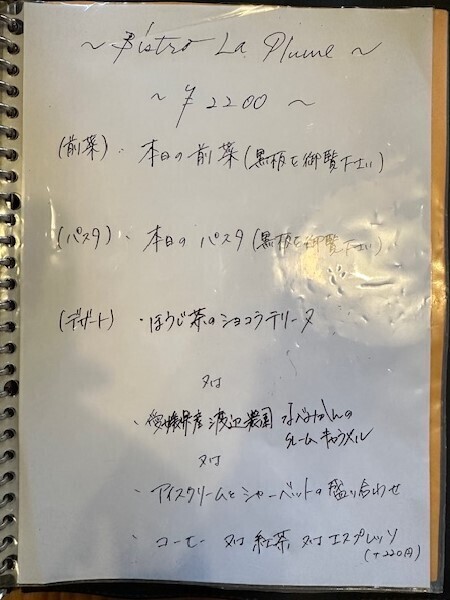 ~ Bistro La Plume ~
~ ¥2200 ~
(前菜)・本日の前菜(黒板を御覧下さい)
(パスタ)・本日のパスタ(黒板を御覧下さい)
(デザート)・ほうじ茶のショコラテリーヌ
又は
・愛媛県産渡辺農園 みかんの
クレームキャラメル
又は
・アイスクリームとシャーベットの盛り合わせ
・コーヒー 又は 紅茶 又は エスプレッソ
(+220円)